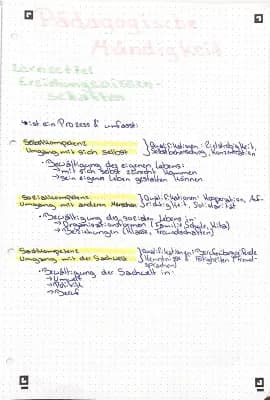 Pädagogische
Mündigkeit
Lernzettel
Erziehungswissen-
schaften
→ist ein Prozess & umfasst:
Selbstkompetenz
Umgang mit sich selbst
Qualifikationen: Zielstrebigkeit,
Selbstbeherrschung, Konzentration
• Bewältigung des eigenen Lebens:
→mit sich selbst zurecht kommen
→sein eigenes Leben gestalten können
Sozialkompetenz
Umgang mit anderen Menschen
Qualifikationen: Kooperation, Auf-
richtigkeit, Solidarität
• Bewältigung des sozialen Lebens in:
→Organisationsformen (Familie, Schule, Kita)
→Beziehungen (Klasse, Freundschaften)
Sachkompetenz
Umgang mit der Sachwelt
Qualifikationen: Berufsbezogene
Kenntnisse & Fähigkeiten (Fremd-
sprachen)
• Bewältigung der Sachwelt in:
→Umwelt
→Politik
→Beruf